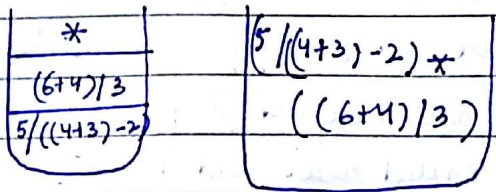 *
(6+4)/3
5/((4+3)-2)
(5/((4+3)-2) *
((6+4)/3)